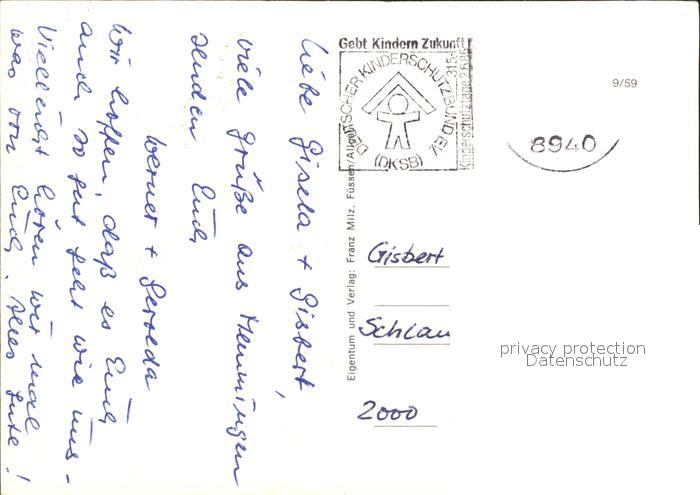 Liebe Gisela + Gisbert,
viele Grüße aus Memmingen
senden Euch
Werner + Gerolda
Wir hoffen, daß es Euch
auch so gut geht wie uns -
Vielleicht hören wir mal
was von Euch. Alles Gute!
Gebt Kindern Zukunft
DEUTSCHER KINDERSCHUTZBUND E.V.
(DKSB)
Kinderschutztage
9/59
8940
Eigentum und Verlag: Franz Milz, Füssen/Allgäu
Gisbert
Schlau
2000
privacy protection
Datenschutz